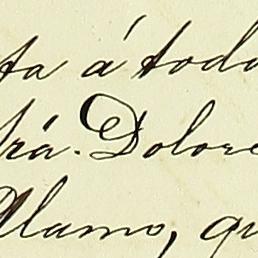 ta á toda
Srá. Dolore
Alamo, qu